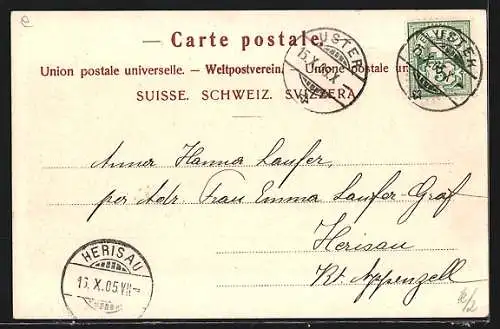 e
Carte postale.
Union postale universelle. — Weltpostverein. — Unione postale un
SUISSE. SCHWEIZ. SVIZZERA.
USTER
USTER
Anna Hanna Laufer,
per Adr. Frau Emma Laufer-Graf
Herisau
Kt. Appenzell
HERISAU
15.X.05.VII